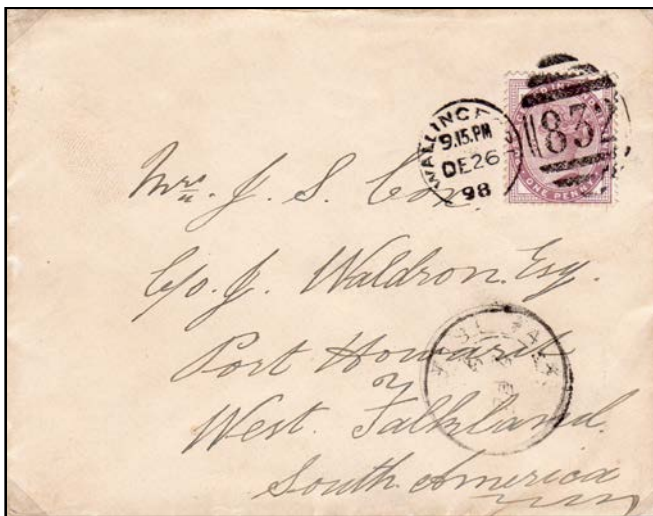 9.15.PM
DE 26
98
ONE PENNY
Mrs. J. S. Cox
C/o. J. Waldron. Esq.
Port Howard
West. Falkland.
South America